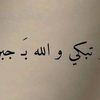 تبكي و الله بَـ جبر